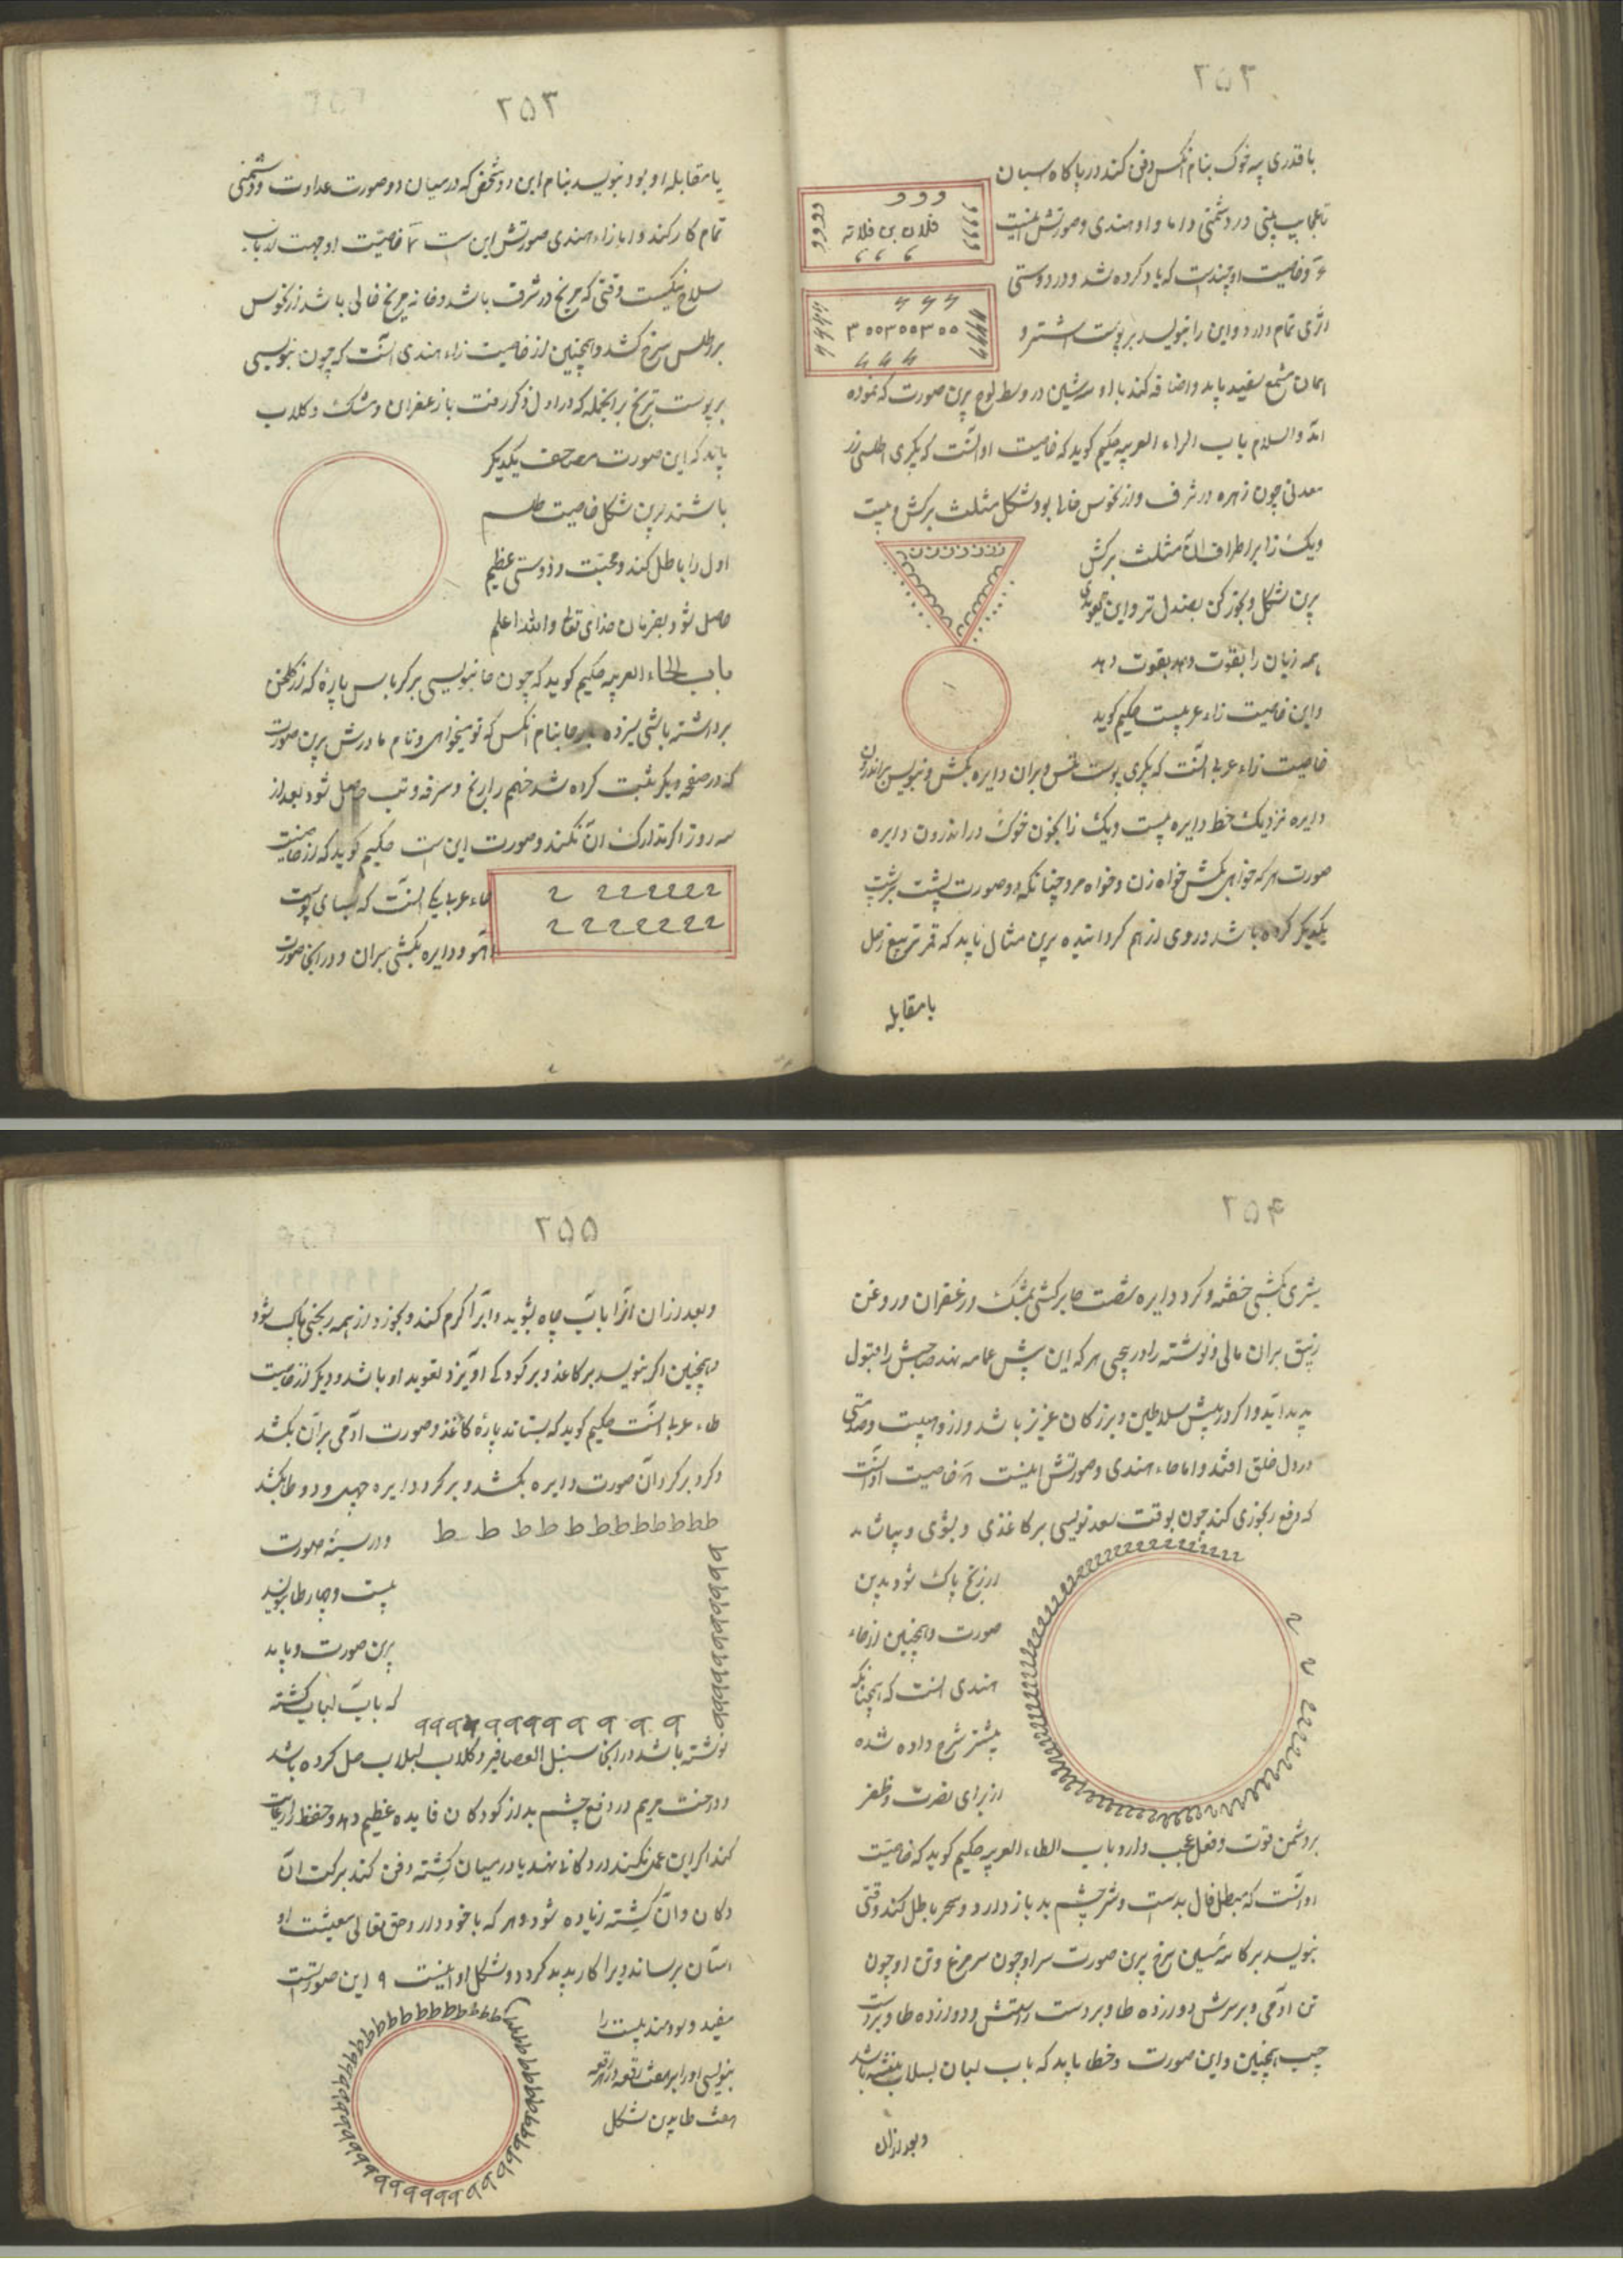 ۲۵۲
با قدری پیه خوک بنام انکس دفن کند در پایکاه اسبان
تا عجایب بینی در دشمنی و اما واو هندی و صورتش اینست
و خاصیت او چندست که یاد کرده شد و در دوستی
اثری تمام دارد و این را بنویسد بر پوست اشتر و
فلان بن فلانه
همان شمع سفید باید و اضافه کند با او سه شین در وسط لوح برین صورت که نموده
اند والسلام باب الزاء العربیه حکیم کوید که خاصیت او انست که بکیری اطلسی زر
معدنی چون زهره در شرف و از نحوس خالی بود شکل مثلث برکش و بیست
ویک زا بر اطراف ان مثلث برکش
برین شکل و بخور کن بصندل تر و این
همه زیان را بقوت دهد بقوت دهد
و این خاصیت زاء عربیست حکیم کوید
خاصیت زاء عربی انست که بکیری پوست و بران دایره بکش و بنویس بر اندرون
دایره نزدیک خط دایره بیست ویک زا بخون خوک در اندرون دایره
صورت هر که خواهی بکش خواه زن و خواه مرد چنانکه دو صورت پشت بر پشت
یکدیکر کرده باشد و روی از هم کردانیده برین مثال باید که قمر تربیع زحل
یا مقابله
۲۵۳
یا مقابله او بود بنویسد بنام این دو شخص که در میان دو صورت عداوت و دشمنی
تمام کار کند و اما زاء هندی صورتش این ست خاصیت او جهت ارباب
سلاح نیکست وقتی که مریخ در شرف باشد و خانه مریخ خالی باشد از نحوس
بر اطلس سرخ کشد و همچنین از خاصیت زاء هندی انست که چون بنویسی
بر پوست ترنج بر انجمله که در اول ذکر رفت با زعفران و مشک و کلاب
باید که این صورت مصاحف یکدیکر
باشند برین شکل خاصیت طلسم
اول را باطل کند و محبت و دوستی عظیم
حاصل شود بفرمان خدای تعالی والله اعلم
باب الحاء العربیه حکیم کوید که چون حا بنویسی بر کرباس پارهٔ که از کلخن
برداشته باشی سیزده حا بنام انکس که تو میخواهی و نام مادرش برین صورت
که در صفحه دیکر ثبت کرده شد خصم را رنج و سرفه و تب حاصل شود بعد از
سه روز اکر تدارک ان نکند و صورت این ست حکیم کوید که از خاصیت
حاء عربی یکی انست که بستانی پوست
اهو و دایره بکشی بران و در انجا صورت
۲۵۴
بشری بکشی خفته و کرد دایره شصت حا برکشی بمشک و زعفران و روغن
زنبق بران مالی و نوشته را در پیچی هر که این پیش عامه نهد صاحبش را قبول
پدید آید و اکر در پیش سلاطین و بزرکان عزیز باشد و ازو هیبت و صلابتی
در دل خلق افتد و اما حاء هندی و صورتش اینست خاصیت او انست
که دفع رنجوری کند چون بوقت سعد نویسی بر کاغذی و بشوی و بیاشامد
از رنج پاک شود بدین
صورت و همچنین از حاء
هندی انست که همچنانکه
پیشتر شرح داده شده
از برای نصرت و ظفر
بر دشمن قوت و فعل عجب دارد باب الطاء العربیه حکیم کوید که خاصیت
او انست که مبطل فال بدست و شر چشم بد باز دارد و سحر باطل کند وقتی
بنویسد بر کاسه سفالین سرخ برین صورت سر او چون سر مرغ و تن او چون
تن آدمی و بر سرش دوازده طا و بر دست راستش و دوازده طا و بر دست
چپ همچنین و این صورت و خط باید که باب لبان لبلاب بنوشته باشد
و بعد ازان
۲۵۵
و بعد ازان انرا باب چاه بشوید و آبرا کرم کند و بخورد از همه رنجی پاک شود
و همچنین اکر بنویسد بر کاغذ و بر کودکی اویزد تعوید او باشد و دیکر از خاصیت
طاء عربی انست حکیم کوید که بستاند پارهٔ کاغذ و صورت آدمی بران بکشد
و کرد بر کرد آن صورت دایره بکشد و بر کرد دایره چهل و دو طا بکشد
ط ط ط ط ط ط ط ط ط ط ط ط ط
و در سینه صورت
بیست و چهار طا بنویسد
برین صورت و باید
که باب لبلاب کشته
نوشته باشد در انجا سنبل العصافیر و کلاب لبلاب حل کرده باشد
و درخت مریم در دفع چشم بد از کودکان فایده عظیم دهد و حفظ
کند اکر این عمل نکنند در دکانی نهند یا در میان کشته دفن کند برکت ان
دکان و آن کشته زیاده شود و هر که با خود دارد حق تعالی معیشت او
اسان برساند و برا کار پدید کردد و شکل او اینست ۹ این صورتست
مفید و سودمند بیست را
بنویسی او را بر هفت رقعه در هر رقعه
هفت طا بدین شکل